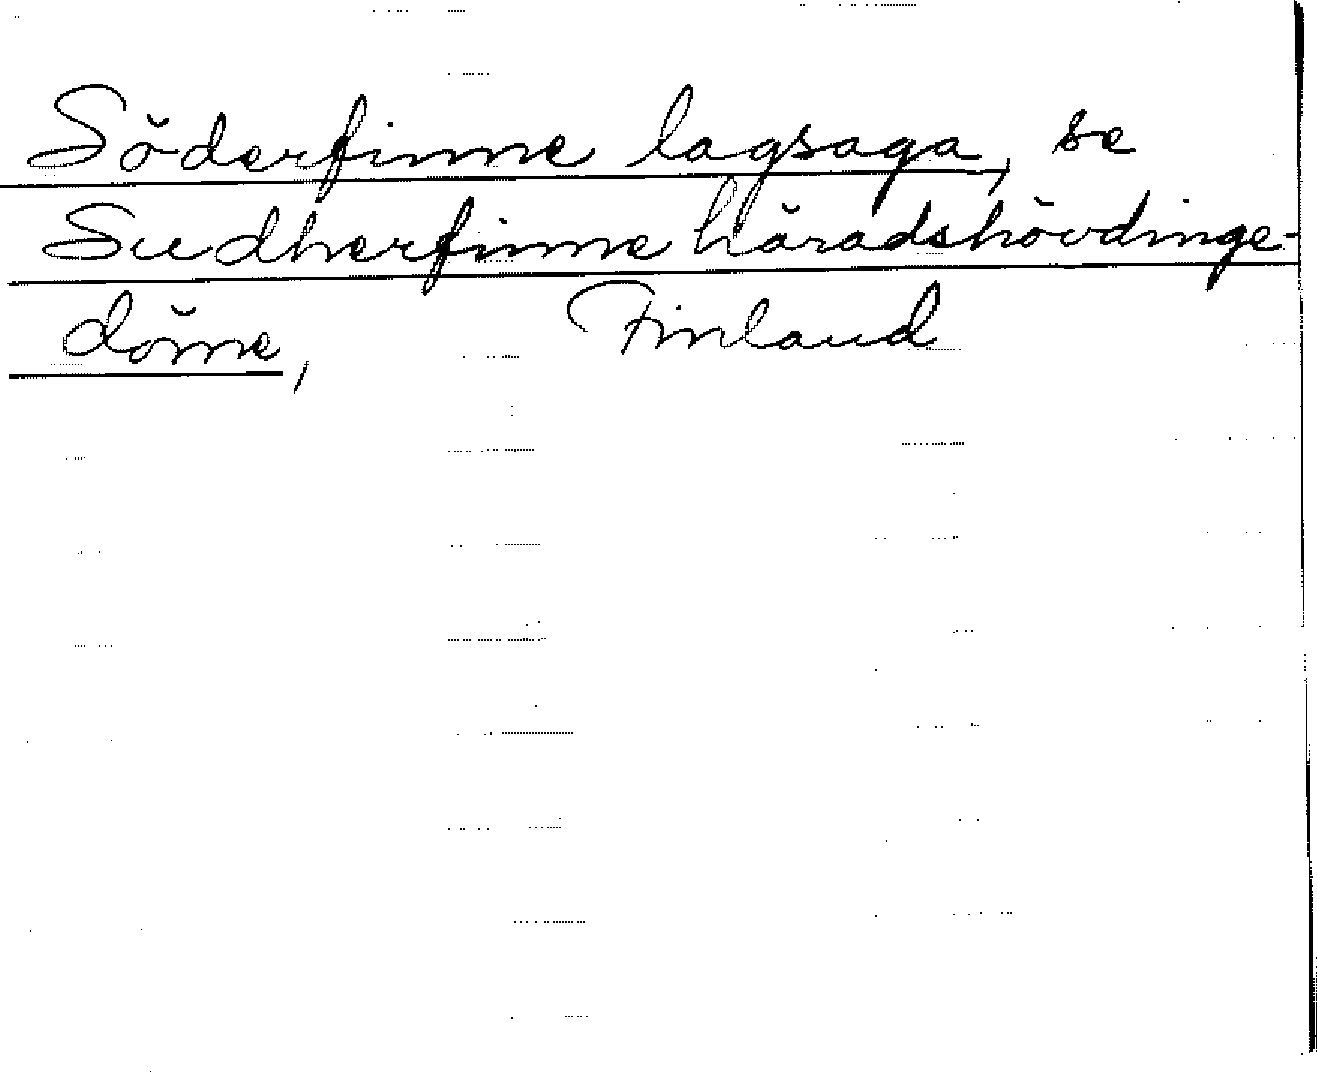 Söderfinne lagsaga, se
Sudherfinne häradshövdinge-
döme, Finland